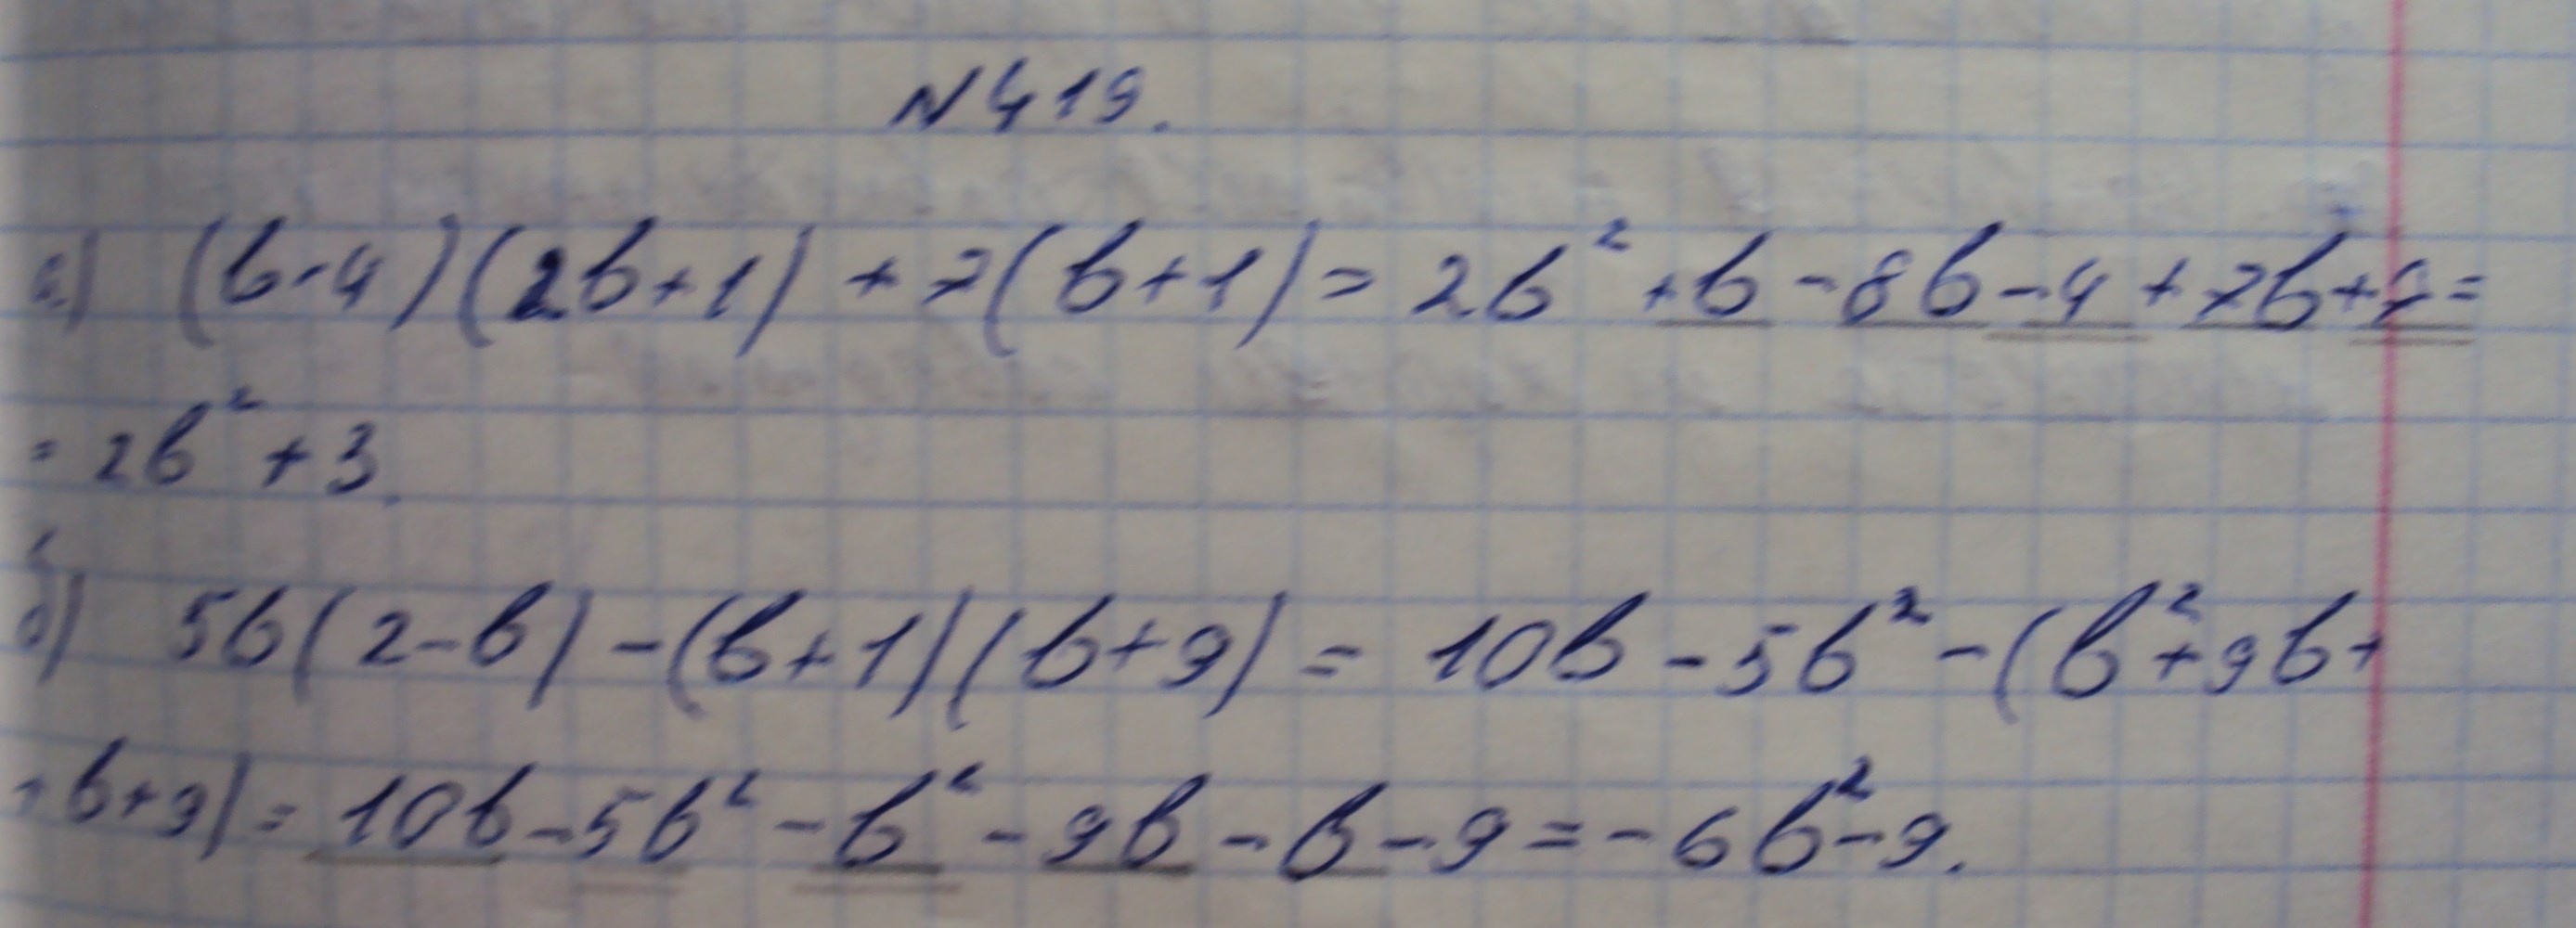 N419.
а) (b-4)(2b+1) + 7(b+1) = 2b² + b - 8b - 4 + 7b + 7 =
= 2b² + 3.
б) 5b(2-b) - (b+1)(b+9) = 10b - 5b² - (b² + 9b +
+ b + 9) = 10b - 5b² - b² - 9b - b - 9 = -6b² - 9.